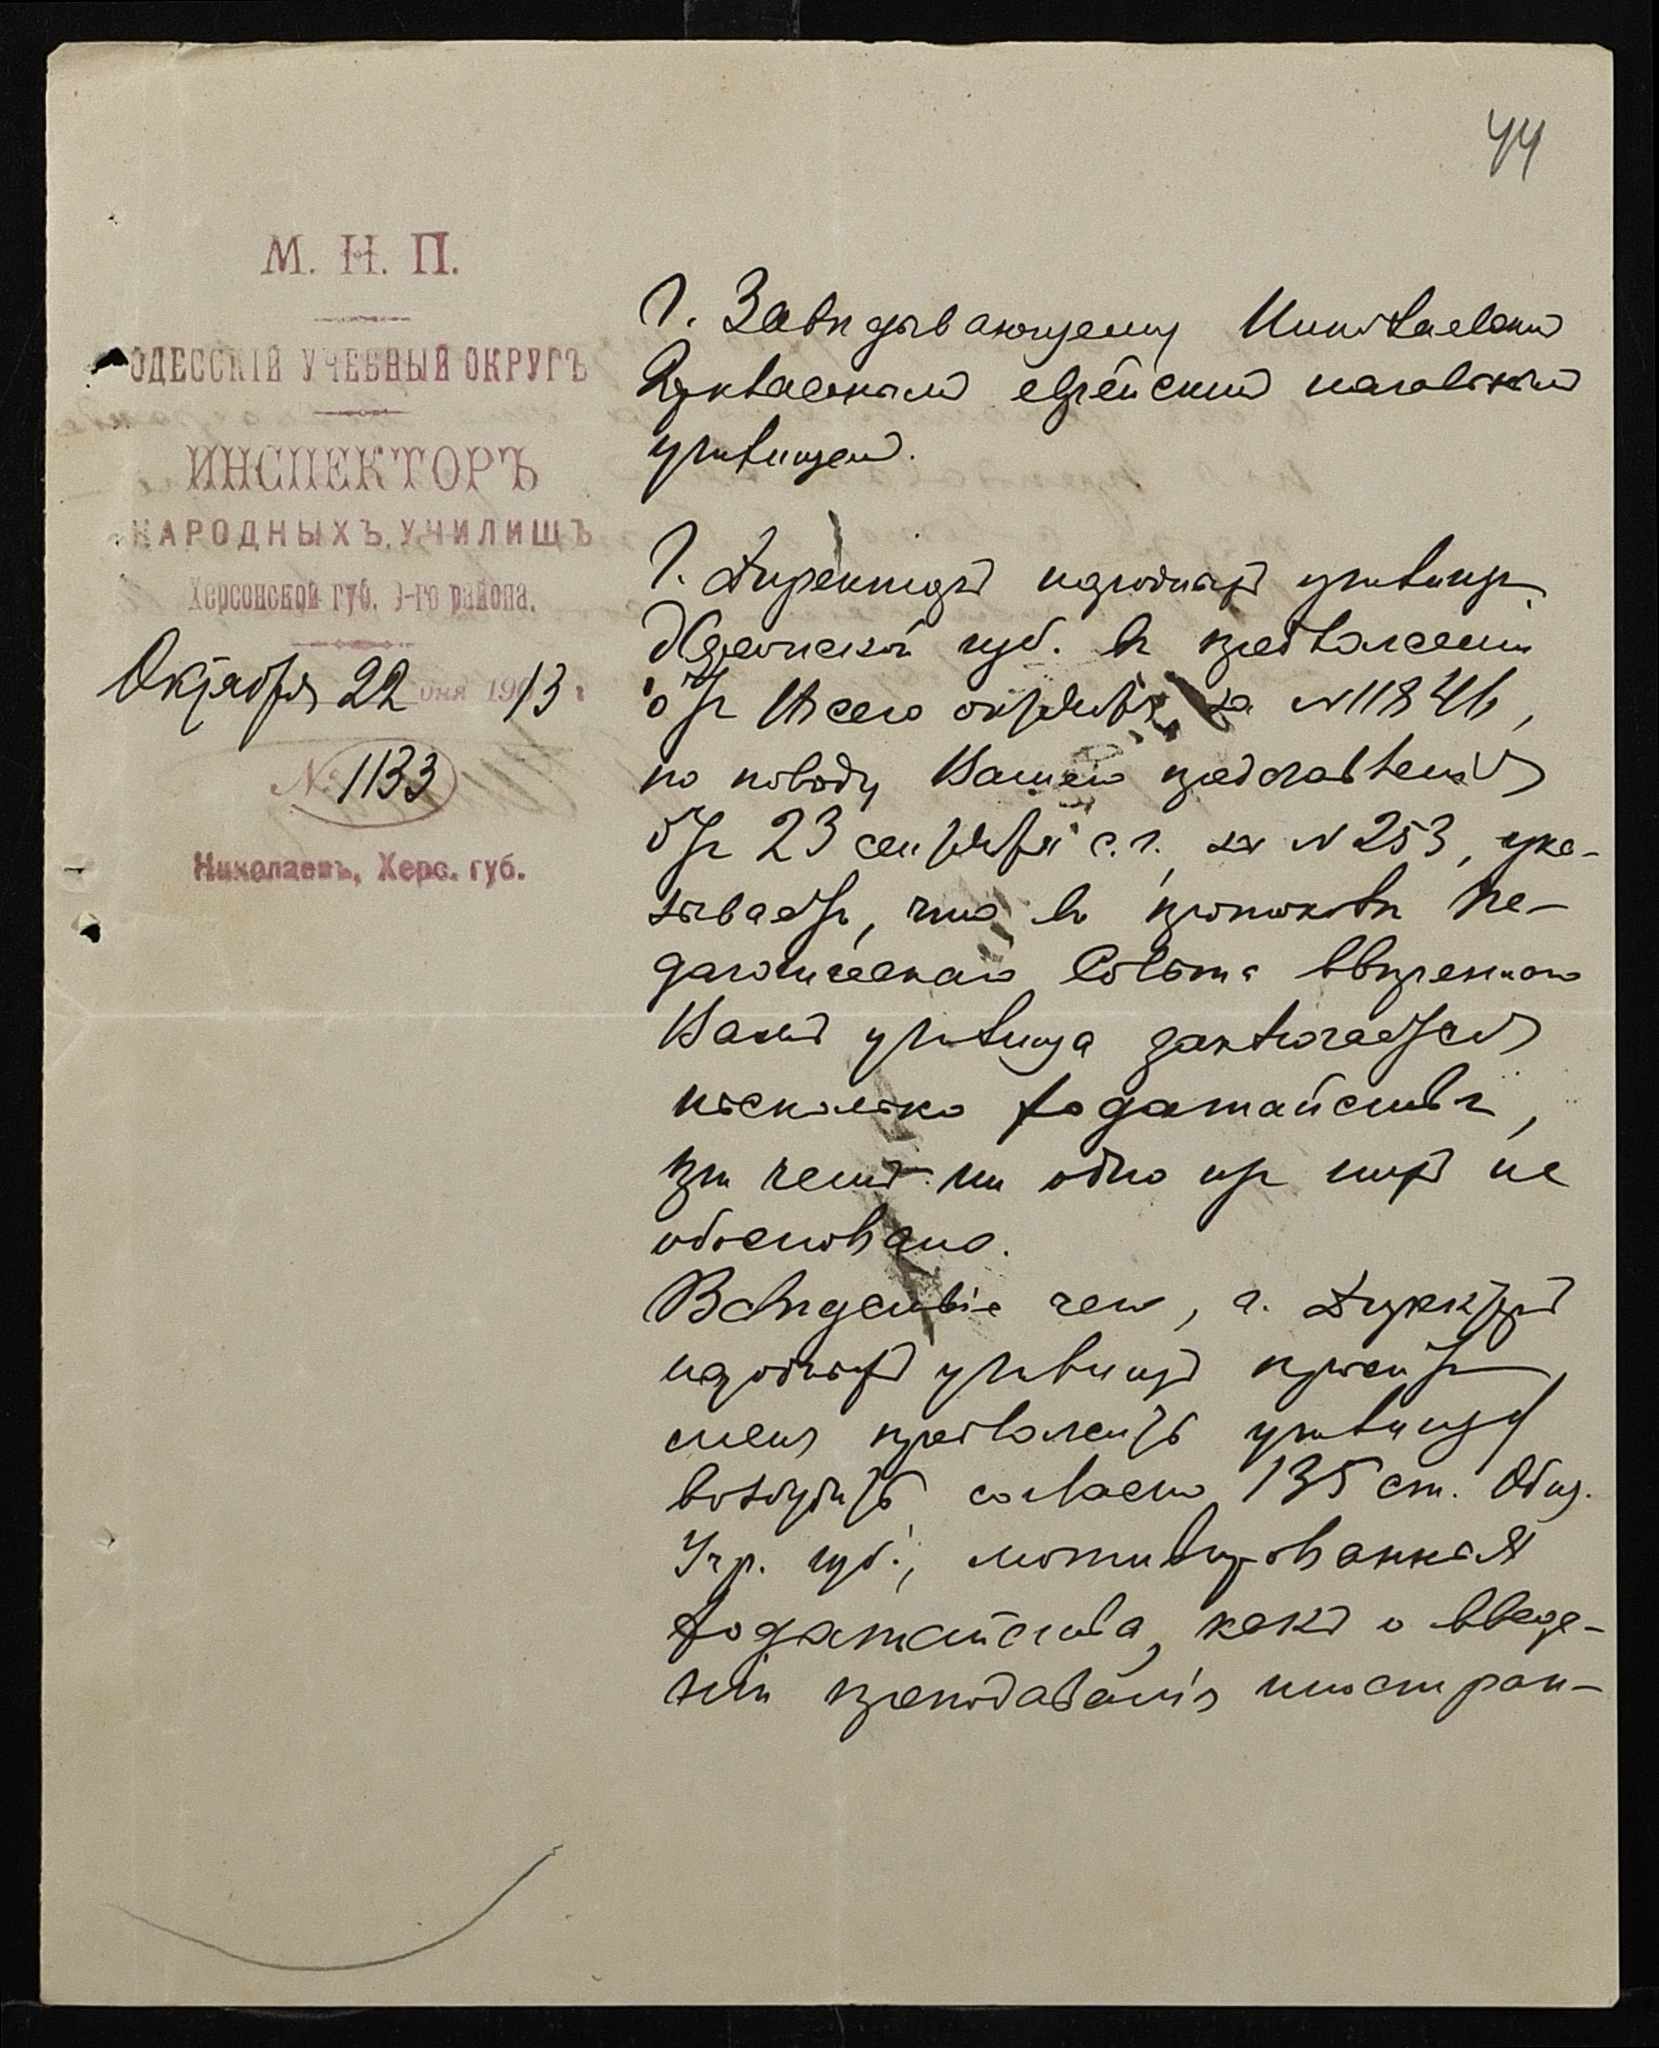 44
М. Н. П.
ОДЕССКІЙ УЧЕБНЫЙ ОКРУГЪ
ИНСПЕКТОРЪ
НАРОДНЫХЪ УЧИЛИЩЪ
Херсонской губ. 9-го района.
Октября 22 дня 1913 г.
№ 1133
Николаевъ, Херс. губ.
Г. Завѣдывающему Николаевскимъ
2хкласснымъ еврейскимъ начальнымъ
училищемъ.
Г. Директоръ народныхъ училищъ
Херсонской губ. въ предложеніи
отъ сего октября за № 11846,
по поводу Вашего представленія
отъ 23 сентября с. г. за № 253, ука-
зываетъ, что въ протоколѣ Пе-
дагогическаго Совѣта ввѣреннаго
Вамъ училища заключается
нѣсколько ходатайствъ,
при чемъ ни одно изъ нихъ не
обосновано.
Вслѣдствіе чего, г. Директоръ
народныхъ училищъ проситъ
меня предложить училищу
возбудить согласно 135 ст. Общ.
Учр. губ., мотивированныя
ходатайства, какъ о введе-
ніи преподаванія иностран-